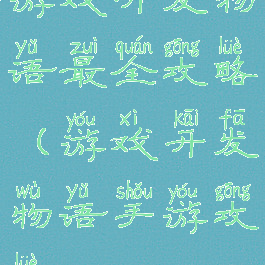 游戏开发物
yǔ zuì quán gōng lüè
语最全攻略
yóu xì kāi fā
(游戏开发
wù yǔ shǒu yóu gōng
物语手游攻
lüè